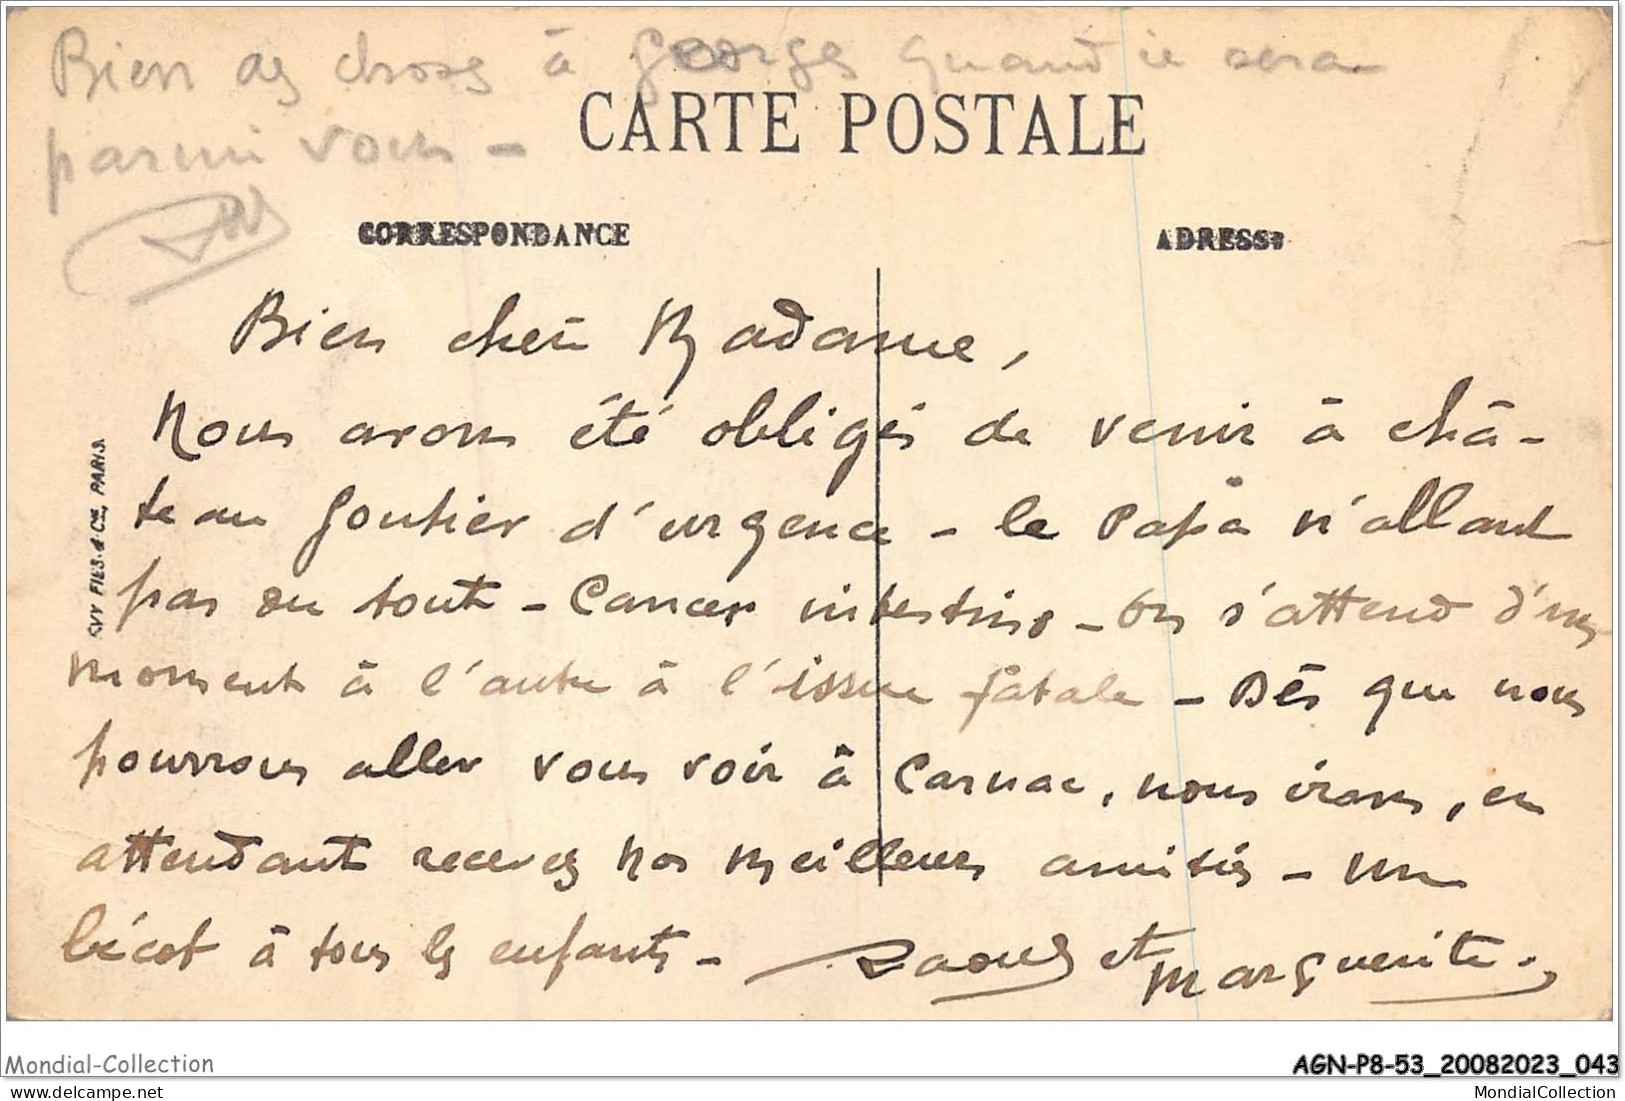 Bien des choses à Georges quand il sera
parmi vous -
CARTE POSTALE
CORRESPONDANCE
ADRESSE
Bien chère Madame,
Nous avons été obligés de venir à châ-
teau Gontier d'urgence - le Papa n'allant
pas du tout - Cancer intestins - On s'attend d'un
moment à l'autre à l'issue fatale - Dès que nous
pourrons aller vous voir à Carnac, nous irons, en
attendant recevez nos meilleures amitiés - un
bécot à tous les enfants - Raoul et
Marguerite.
FILS & Cie, PARIS
Mondial-Collection
AGN-P8-53_20082023_043
www.delcampe.net
MondialCollection